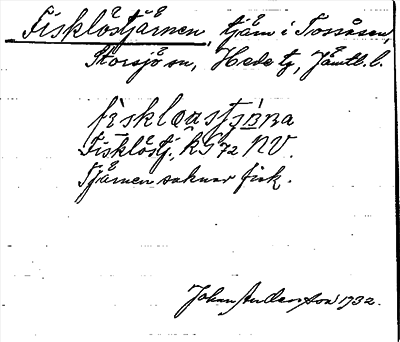 Fisklöstjärnen, tjärn i Tossåsen,
Storsjö sn, Hede tg, Jämtl. l.
fisklȯustjäṇṇa
Fisklöstj., kS 72 NV.
Tjärnen saknar fisk.
Johan Andersson 1932.